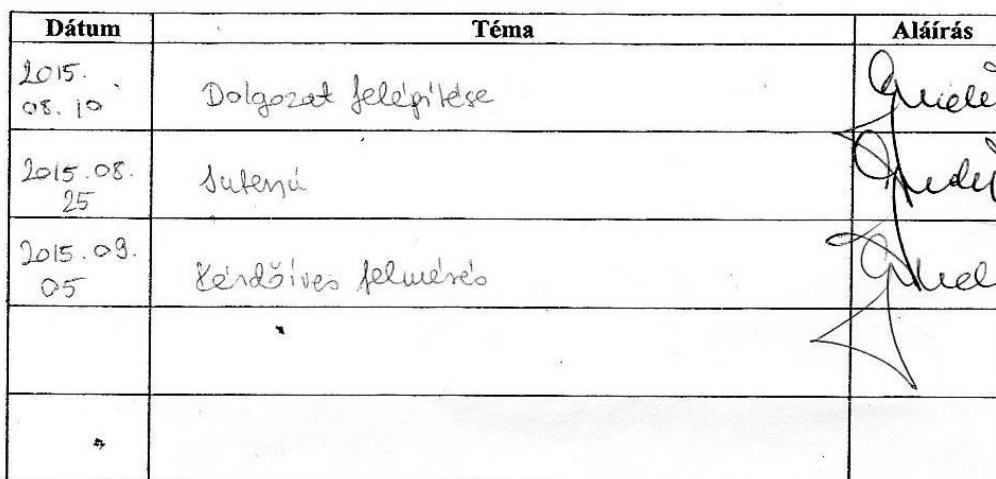 Dátum Téma Aláírás
2015.
08.10 Dolgozat felépítése
2015.08.
25 Interjú
2015.09.
05 Kérdőíves felmérés